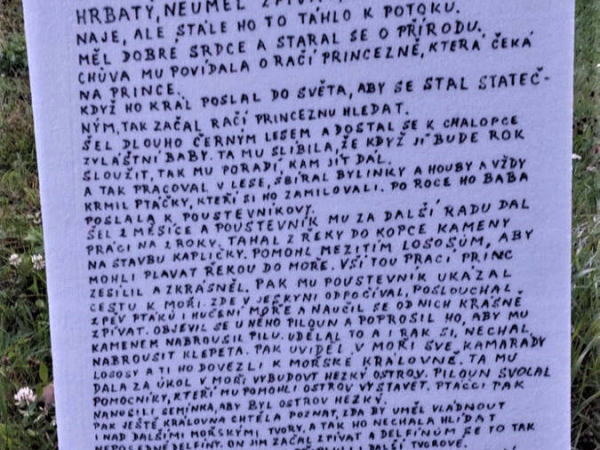 HRBATÝ, NEUMĚL
NAJE, ALE STÁLE HO TO TÁHLO K POTOKU.
MĚL DOBRÉ SRDCE A STARAL SE O PŘÍRODU.
CHŮVA MU POVÍDALA O RAČÍ PRINCEZNĚ, KTERÁ ČEKÁ
NA PRINCE.
KDYŽ HO KRÁL POSLAL DO SVĚTA, ABY SE STAL STATEČ-
NÝM, TAK ZAČAL RAČÍ PRINCEZNU HLEDAT.
ŠEL DLOUHO ČERNÝM LESEM A DOSTAL SE K CHALOPCE
ZVLÁŠTNÍ BABY. TA MU SLÍBILA, ŽE KDYŽ JÍ BUDE ROK
SLOUŽIT, TAK MU PORADÍ, KAM JÍT DÁL.
A TAK PRACOVAL V LESE, SBÍRAL BYLINKY A HOUBY A VŽDY
KRMIL PTÁČKY, KTEŘÍ SI HO ZAMILOVALI. PO ROCE HO BABA
POSLALA K POUSTEVNÍKOVI.
ŠEL 2 MĚSÍCE A POUSTEVNÍK MU ZA DALŠÍ RADU DAL
PRÁCI NA 2 ROKY. TAHAL Z ŘEKY DO KOPCE KAMENY
NA STAVBU KAPLIČKY. POMOHL MEZITÍM LOSOSŮM, ABY
MOHLI PLAVAT ŘEKOU DO MOŘE. VŠÍ TOU PRACÍ PRINC
ZESÍLIL A ZKRÁSNĚL. PAK MU POUSTEVNÍK UKÁZAL
CESTU K MOŘI. ZDE V JESKYNI ODPOČÍVAL, POSLOUCHAL
ZPĚV PTÁKŮ I HUČENÍ MOŘE A NAUČIL SE OD NICH KRÁSNĚ
ZPÍVAT. OBJEVIL SE U NĚHO PILOUN A POPROSIL HO, ABY MU
KAMENEM NABROUSIL PILU. UDĚLAL TO A I RAK SI NECHAL
NABROUSIT KLEPETA. PAK UVIDĚL V MOŘI SVÉ KAMARÁDY
LOSOSY A TI HO DOVEZLI K MOŘSKÉ KRÁLOVNĚ. TA MU
DALA ZA ÚKOL V MOŘI VYBUDOVT HEZKÝ OSTROV. PILOUN SVOLAL
POMOCNÍKY, KTEŘÍ MU POMOHLI OSTROV VYSTAVĚT. PTÁČCI PAK
NANOSILI SEMÍNKA, ABY BYL OSTROV HEZKÝ.
PAK JEŠTĚ KRÁLOVNA CHTĚLA POZNAT, ZDA BY UMĚL VLÁDNOUT
I NAD DALŠÍMI MOŘSKÝMI TVORY, A TAK HO NECHALA HLÍDAT
NEPOSEDNÉ DELFÍNY. ON JIM ZAČAL ZPÍVAT A DELFÍNŮM SE TO TAK
DALŠÍ TVOROVÉ.